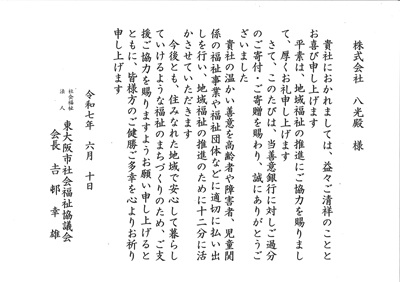 株式会社　八光殿　様
貴社におかれましては、益々ご清祥のことと
お喜び申し上げます
平素は、地域福祉の推進にご協力を賜りまし
て、厚くお礼申し上げます
さて、このたびは、当善意銀行に対しご過分
のご寄付・ご寄贈を賜わり、誠にありがとうご
ざいました
貴社の温かい善意を高齢者や障害者、児童関
係の福祉事業や福祉団体などに適切に払い出
しを行い、地域福祉の推進のために十二分に活
かさせていただきます
今後とも、住みなれた地域で安心して暮らし
ていけるような福祉のまちづくりのため、ご支
援ご協力を賜りますようお願い申し上げると
ともに、皆様方のご健勝ご多幸を心よりお祈り
申し上げます
令和七年　六月　十日
社会福祉法人　東大阪市社会福祉協議会
会長　吉邨幸雄